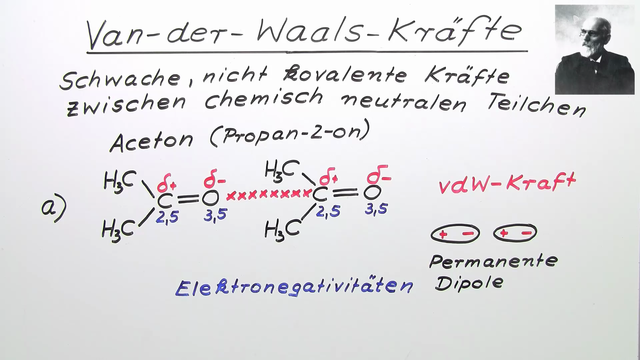 Van-der-Waals-Kräfte
Schwache, nicht kovalente Kräfte
zwischen chemisch neutralen Teilchen
Aceton (Propan-2-on)
H₃C H₃C
δ+ δ- δ+ δ-
a) C=O xxxxxxxxx C=O vdW-Kraft
2,5 3,5 2,5 3,5
H₃C H₃C
+ - + -
Permanente
Dipole
Elektronegativitäten